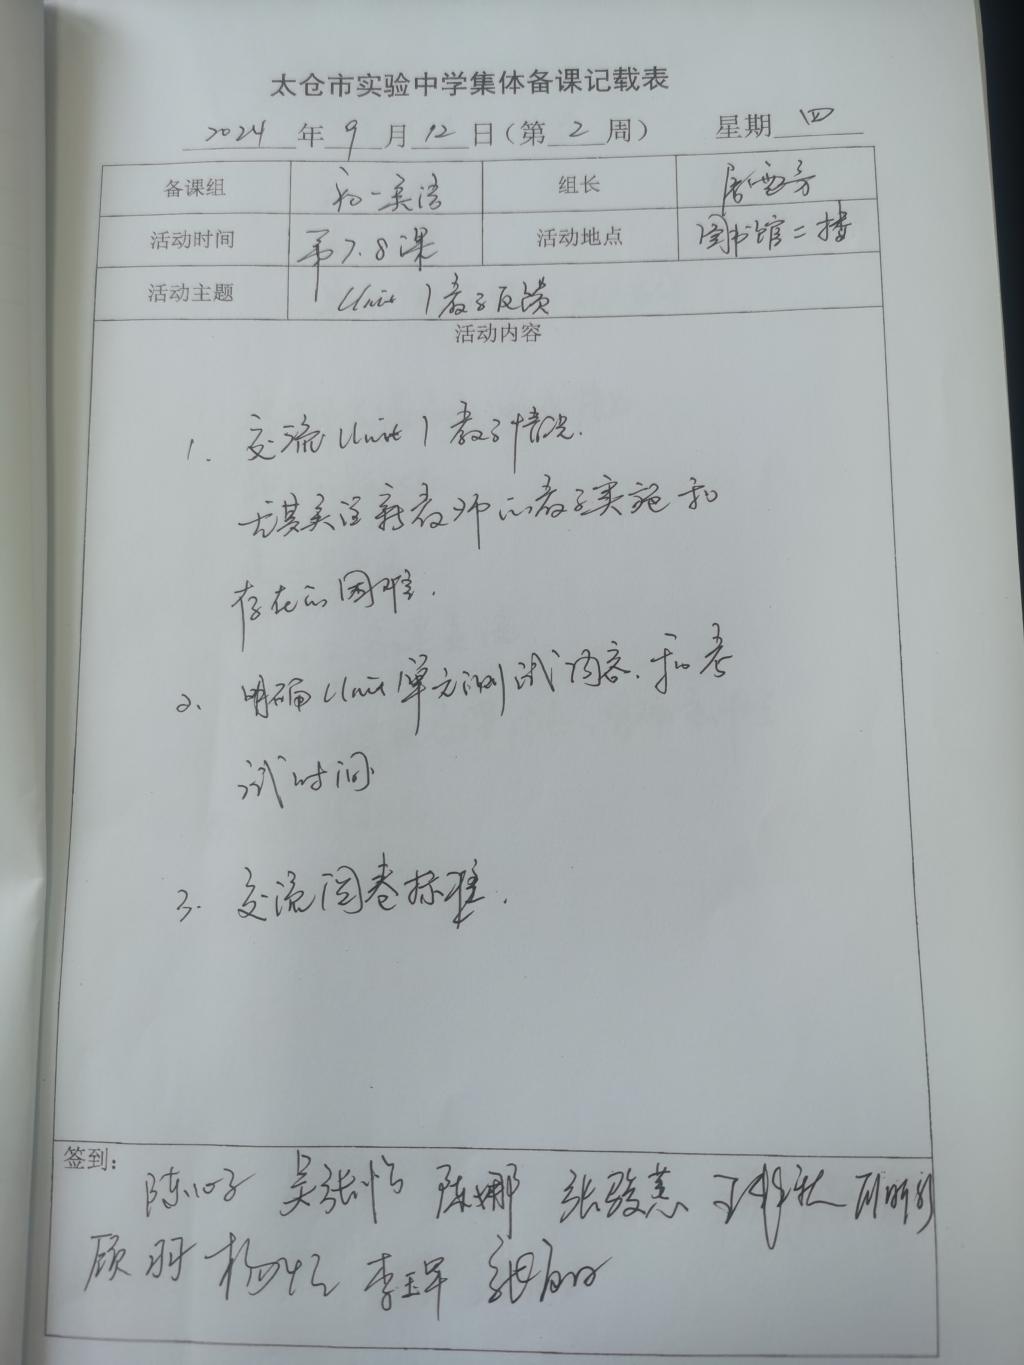 太仓市实验中学集体备课记载表
2024 年 9 月 12 日（第 2 周） 星期 四
备课组 初一英语 组长
活动时间 第7.8课 活动地点 图书馆二楼
活动主题 Unit 1 教学反馈
活动内容
1. 交流 Unit 1 教学情况.
尤其关注新教师的教学实施和
存在的困难.
2. 明确 Unit 1单元测试内容.和考
试时间
3. 交流阅卷标准.
签到：
陈心子 吴张怡 陈娜 张骏惠
顾羽 杨忱 李玉军